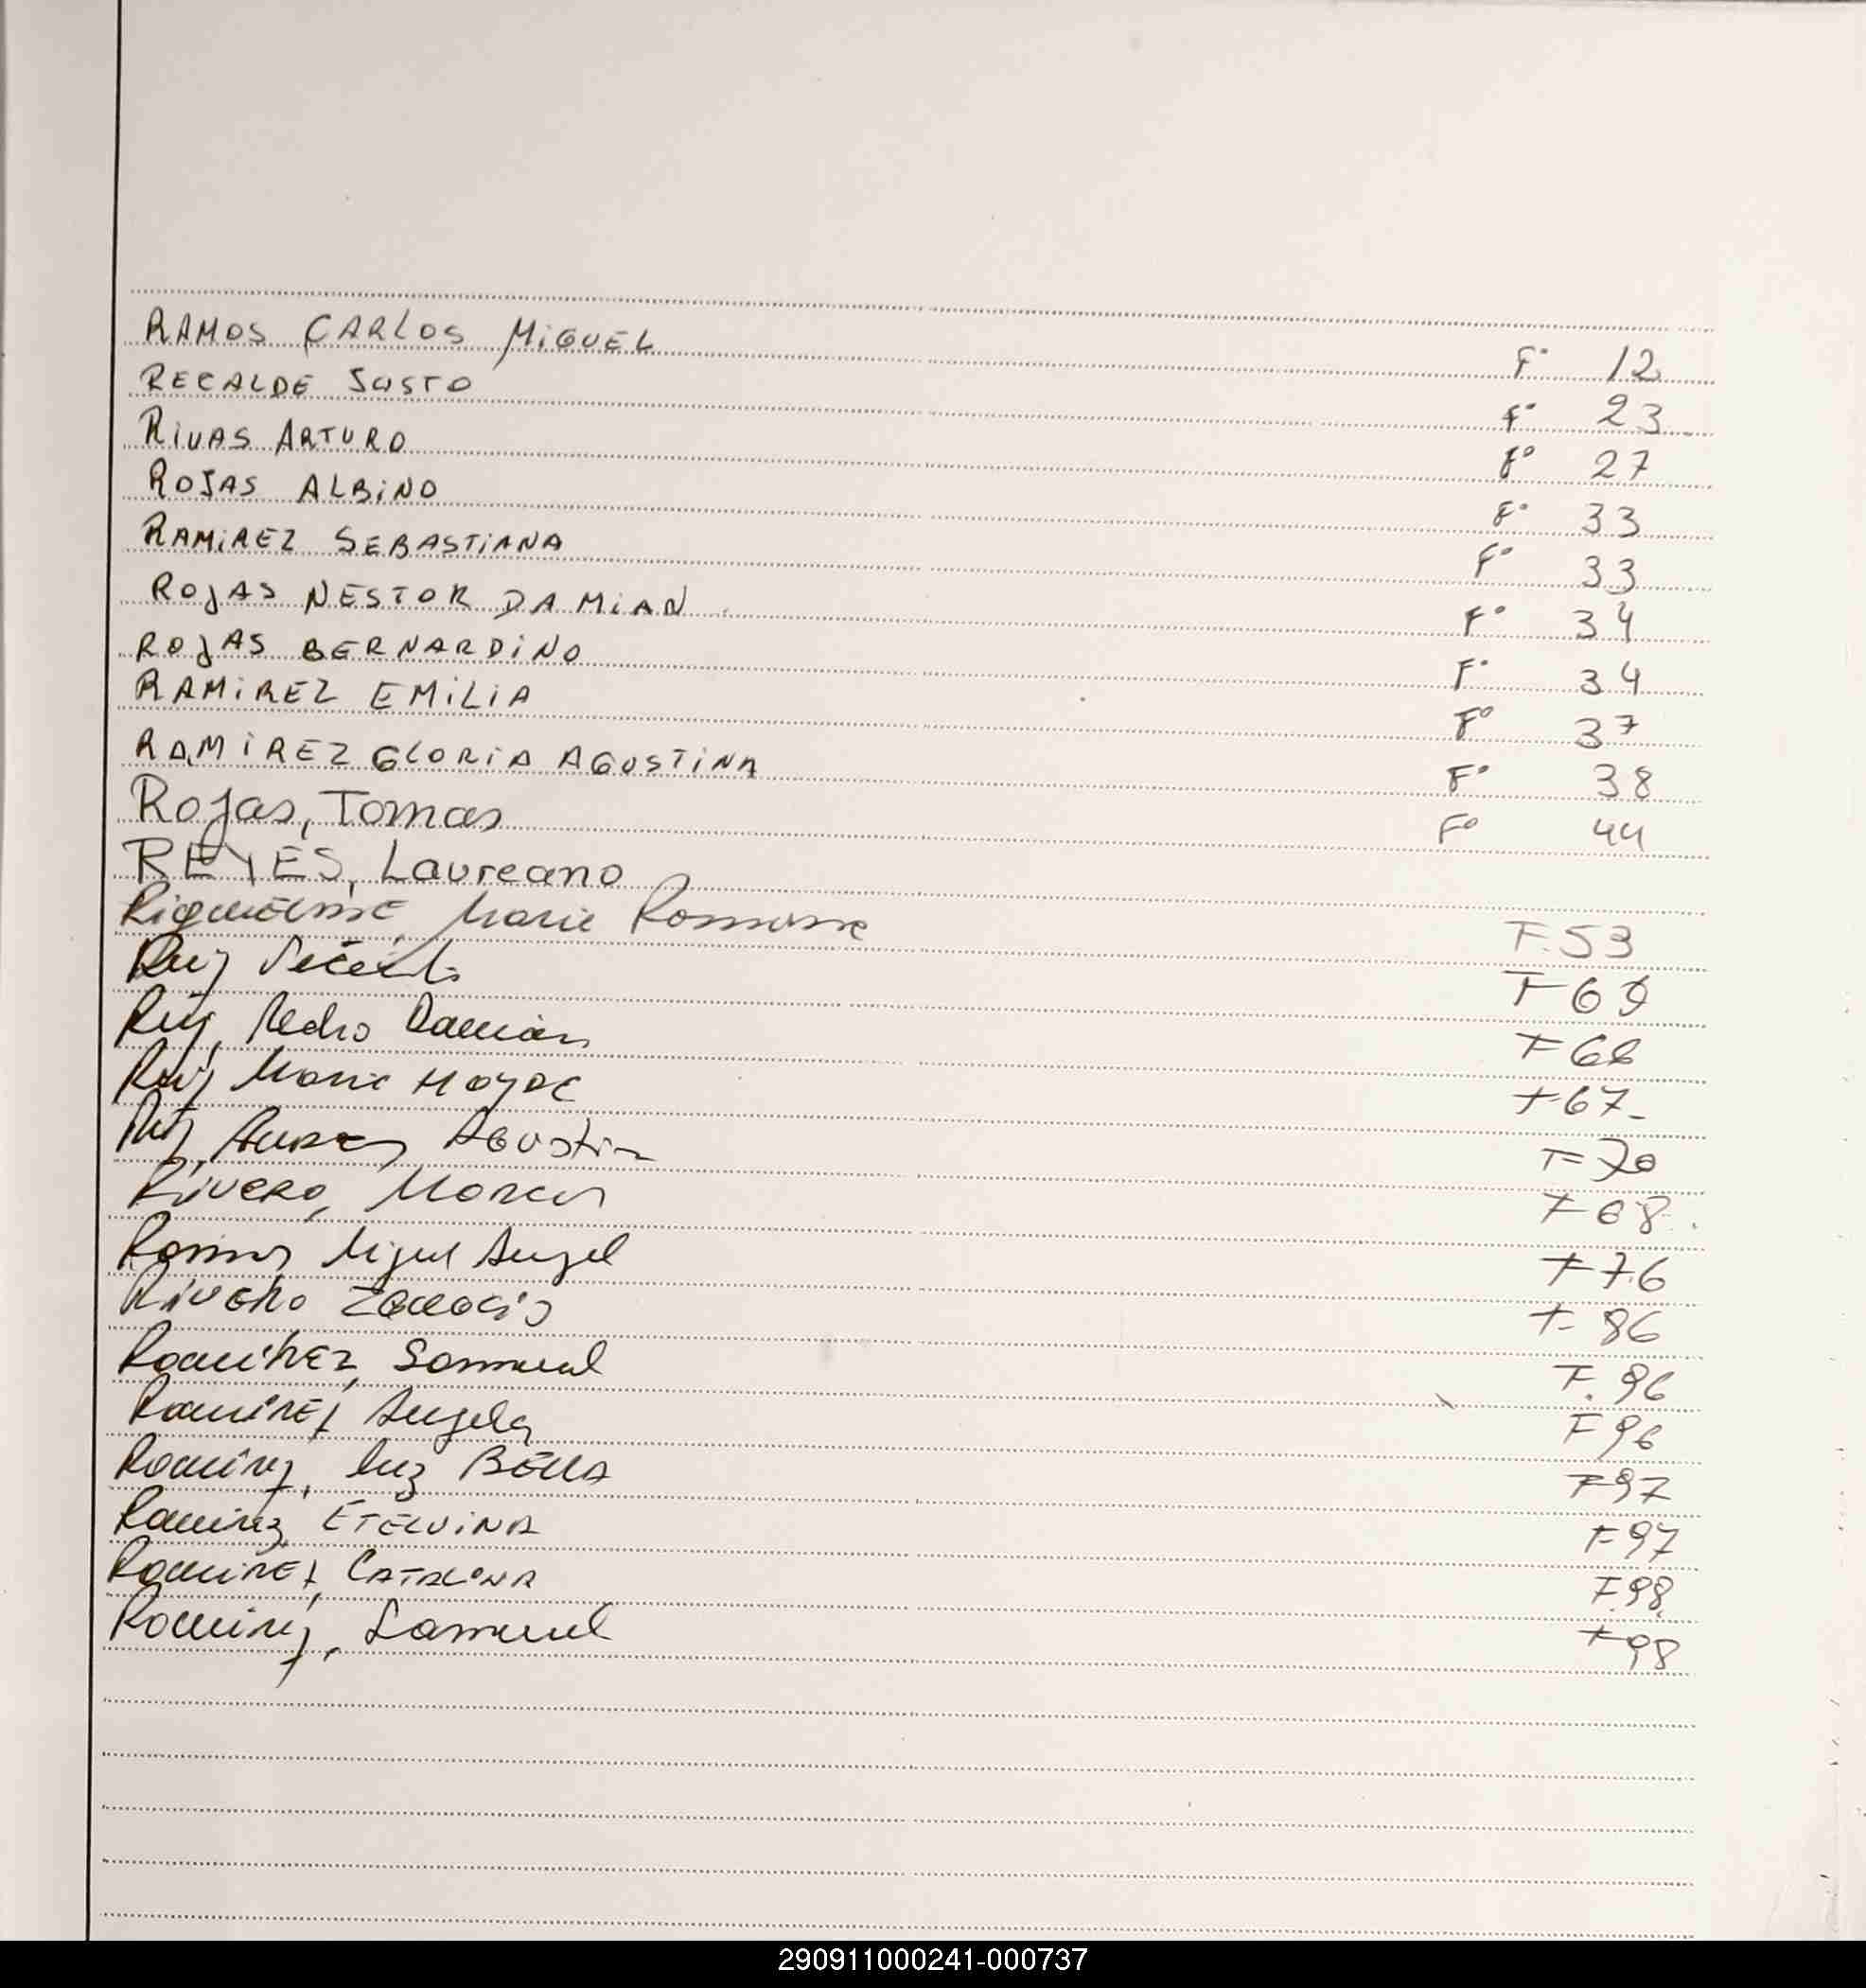 RAMOS CARLOS MIGUEL F° 12
RECALDE JUSTO F° 23
RIVAS ARTURO F° 27
ROJAS ALBINO F° 33
RAMIREZ SEBASTIANA F° 33
ROJAS NESTOR DAMIAN F° 34
ROJAS BERNARDINO F° 34
RAMIREZ EMILIA F° 37
RAMIREZ GLORIA AGUSTINA F° 38
Rojas, Tomas F° 44
REYES, Laureano
Maria F.53
Ruiz F 69
Ruiz, Pedro Damián F 66
Ruiz Maria F 67-
Ruiz, Agustin F 70
Rivero, Marcos F 68.
Miguel Angel F 76
Rivero F. 86
Ramirez, Samuel F. 96
Ramirez, Angela F 96
Ramirez, Luz BELLA F 97
Ramirez ETELVINA F 97
Ramirez, CATALINA F.98
Ramirez, Samuel F 98
290911000241-000737